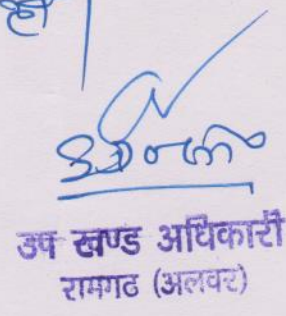 हो।
उप खण्ड अधिकारी
रामगढ (अलवर)